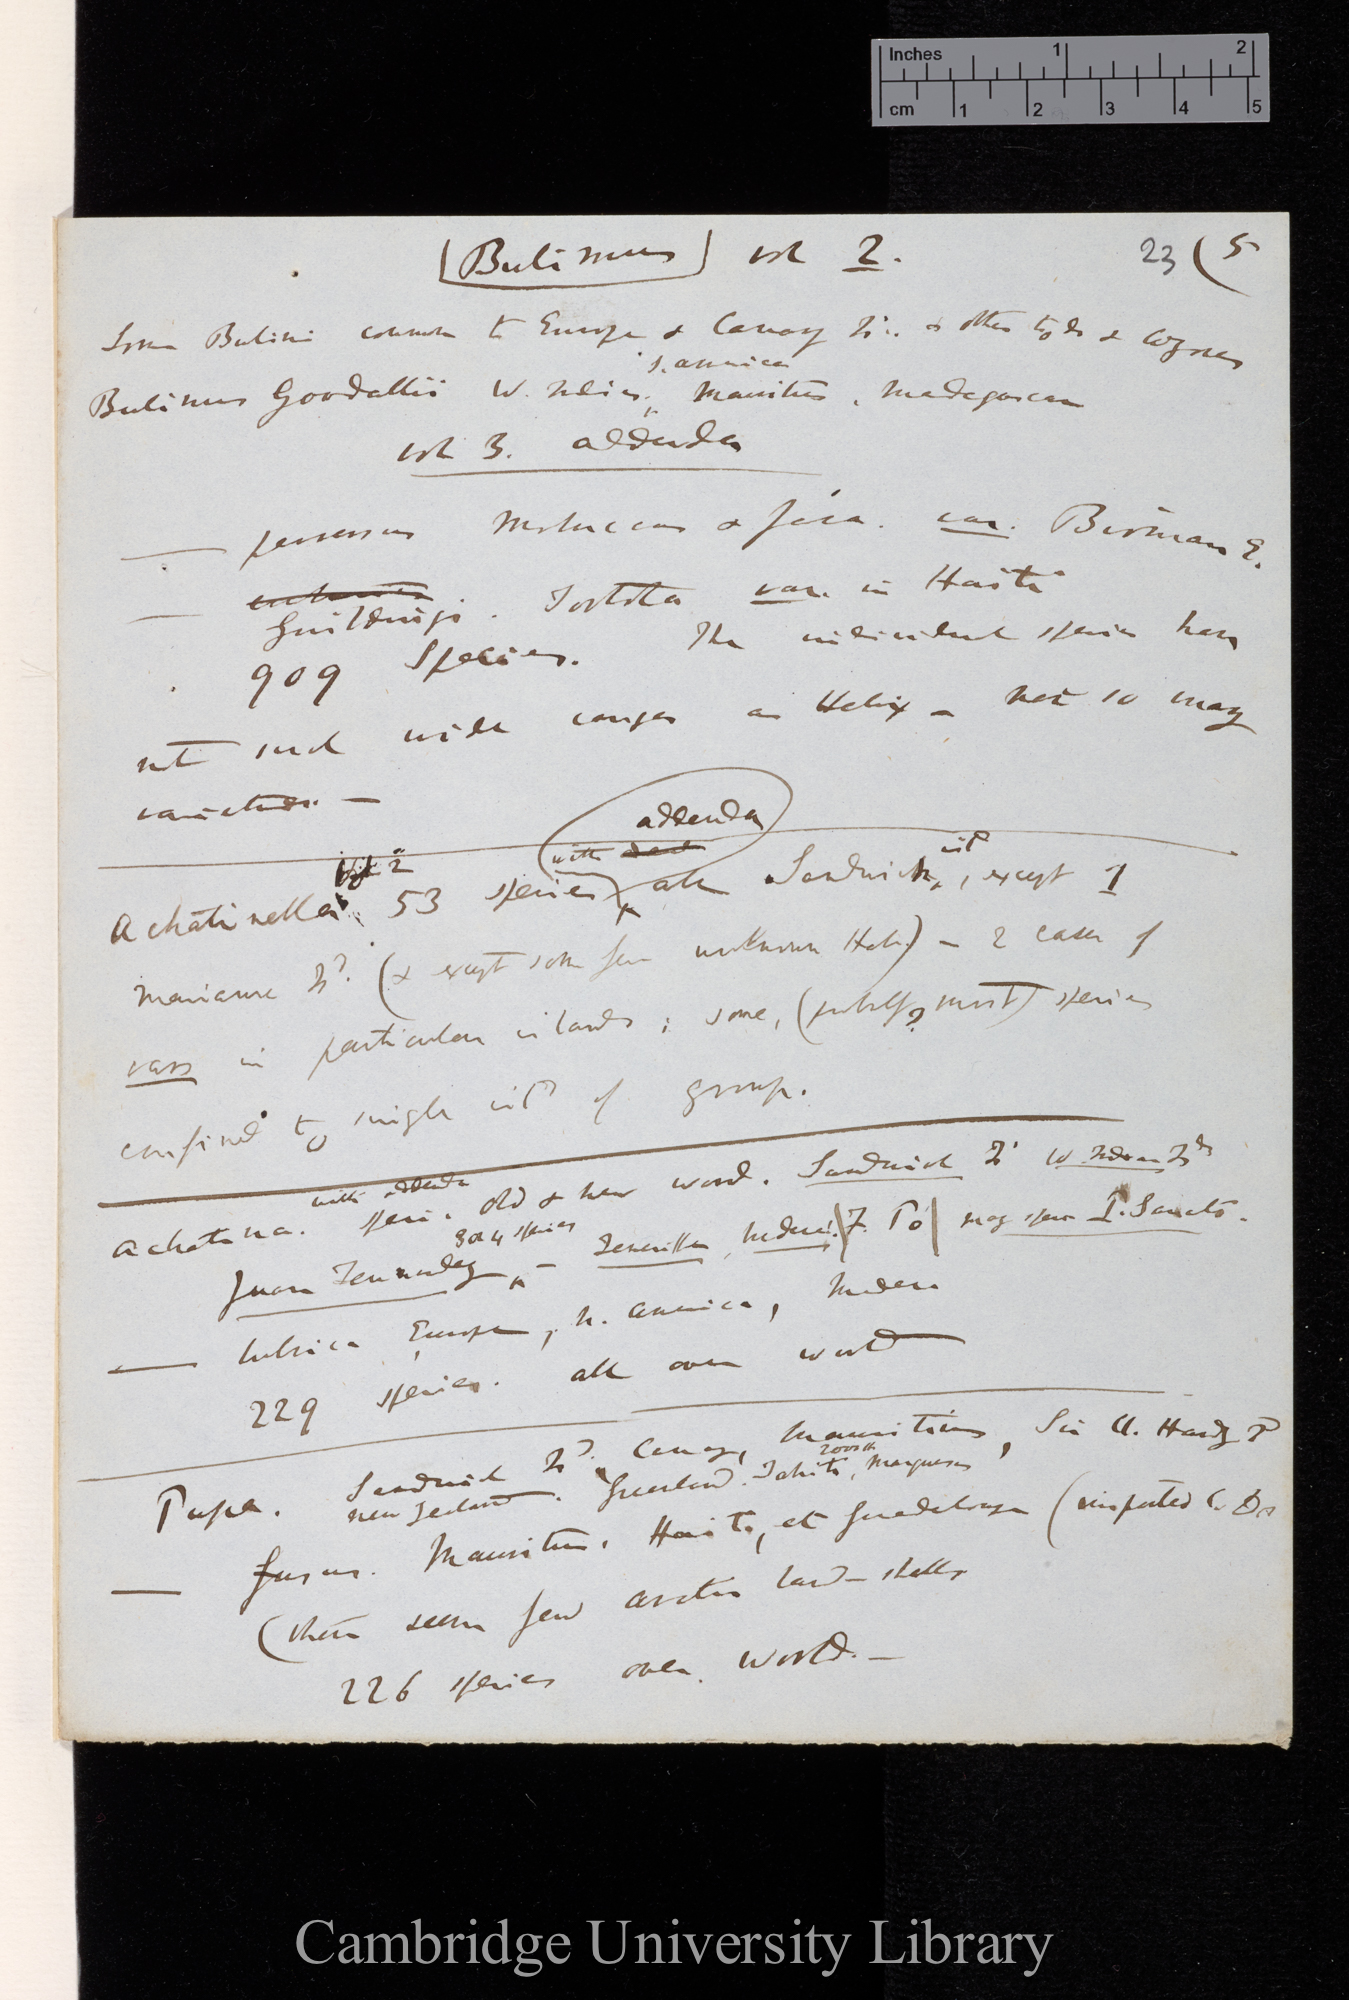 Inches 1 2
cm 1 2 3 4 5
[Bulimus] vol 2. 23 (5
Some Bulimi common to Europe & Canary Is. & other
S. America
Bulimus Goodallii W. Indies, Mauritius, Madagascar
vol 3. addenda
— perversus Moluccas & Java. var. Birman E.
— Guildingi. Tortola var. in Haiti
909 Species. The individual species have
not such wide ranges as Helix — not so many
varieties. —
addenda
Vol 2 with
Achatinella 53 species all Sandwich isd, except 1
Marianne Is. (& except some few unknown Hab.) — 2 cases of
vars in particular islands; some, (probably? most) species
confined to single isd of group.
with addenda
Achatina. spec. old & new world. Sandwich Is W. Indian Isds
3 or 4 species
Juan Fernandez — Teneriffe, Madeira. F. Po many spec P. Santo.
— lubrica Europe, N. America, Madeira
229 species. all over world
Pupa. Sandwich Is. Canary, Mauritius, Sir C. Hardy I
New Zealand. Greenland. Tahiti, Marquesas
— fusus. Mauritius. Haiti, et Guadeloupe (imported C. D.)
(there seem few arctic land-shells
226 species over world. —
Cambridge University Library